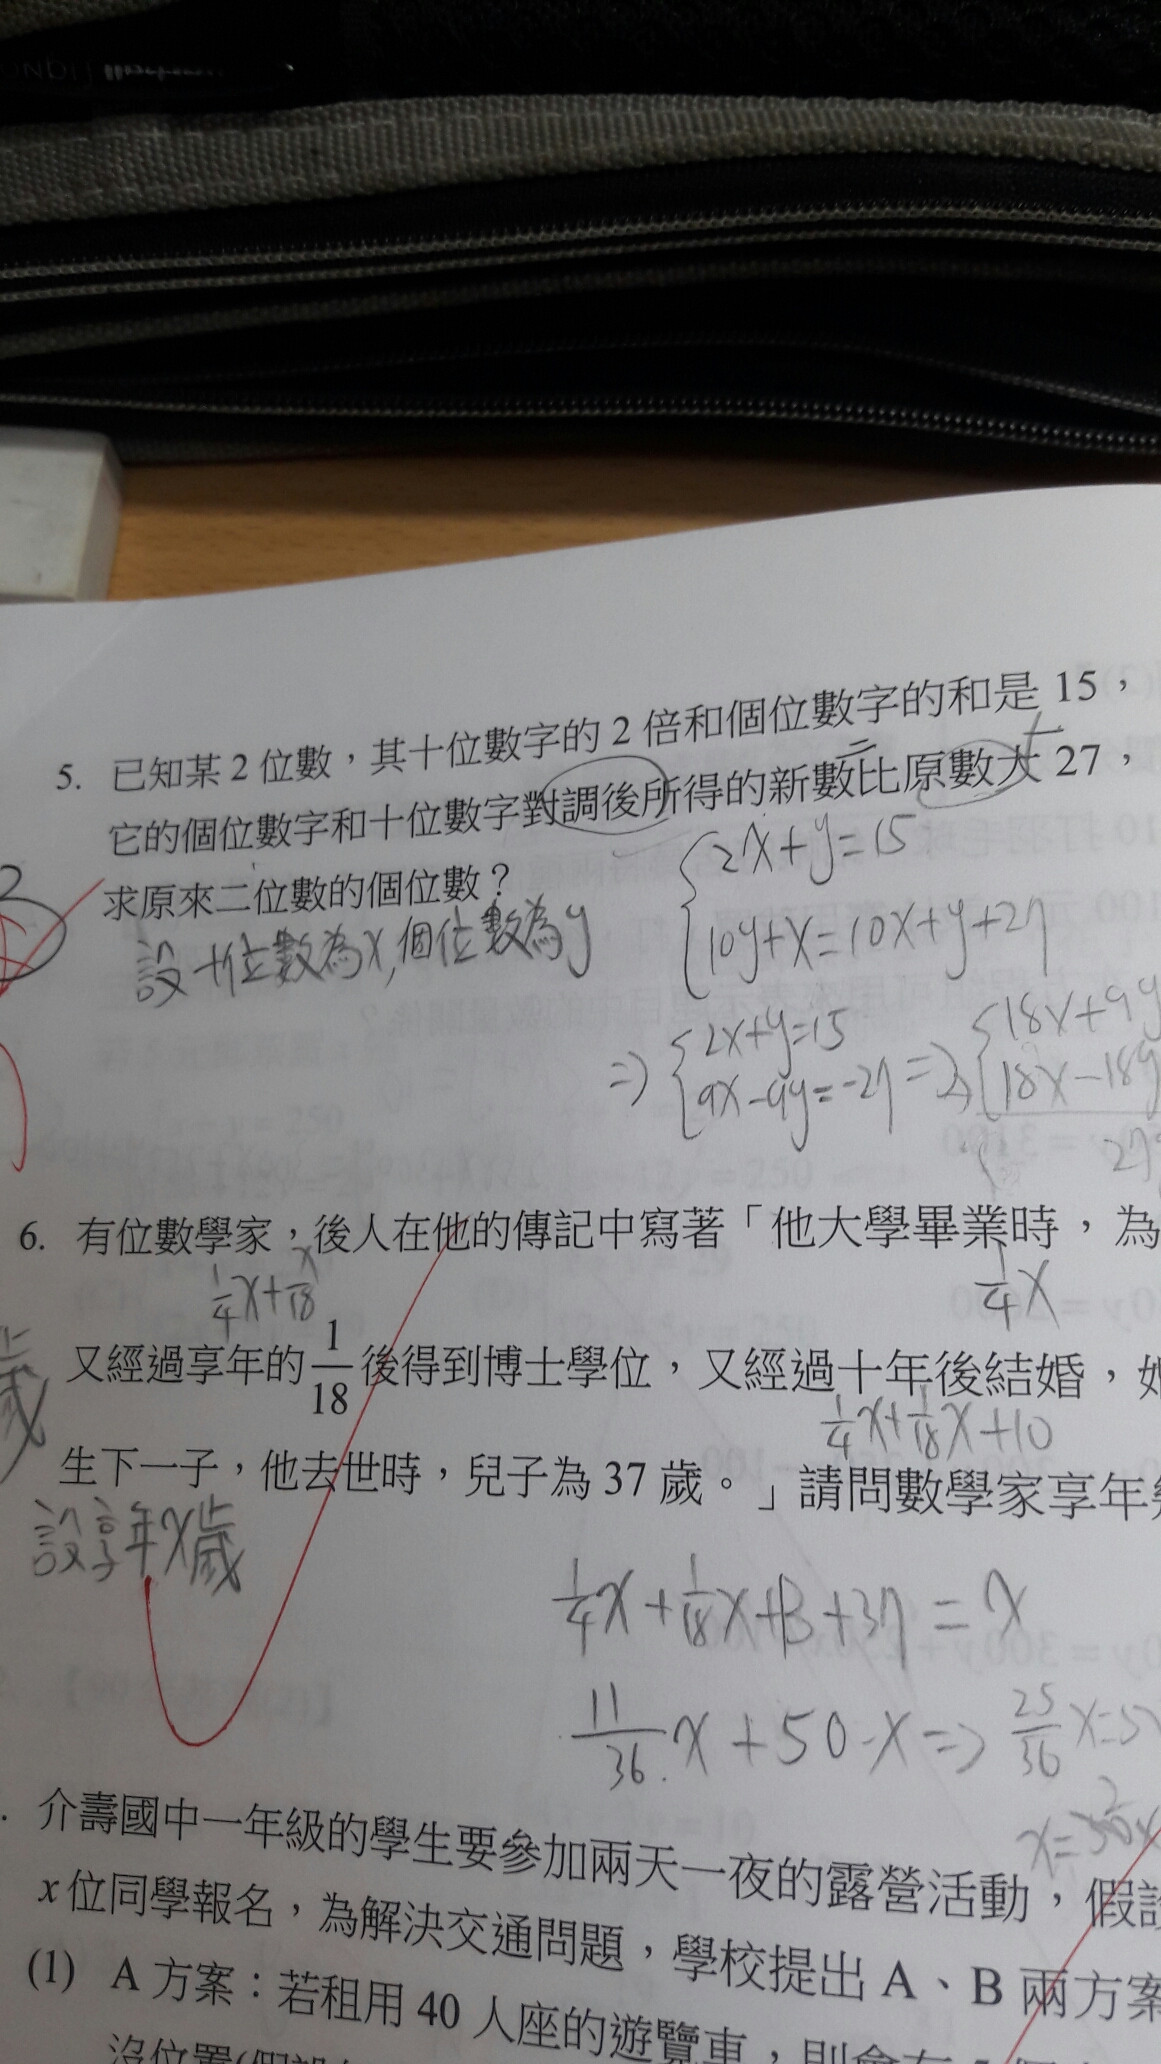 5. 已知某 2 位數，其十位數字的 2 倍和個位數字的和是 15，
它的個位數字和十位數字對調後所得的新數比原數大 27，
求原來二位數的個位數？
設十位數為x,個位數為y
2x+y=15
10y+x=10x+y+27
⇒ 2x+y=15
9x-9y=-27 ⇒
18x+9y
18x-18y
27y
6. 有位數學家，後人在他的傳記中寫著「他大學畢業時，為
1/4x+x/18
1/4x
又經過享年的 1/18 後得到博士學位，又經過十年後結婚，
1/4x+1/18x+10
生下一子，他去世時，兒子為 37 歲。」請問數學家享年
設享年x歲
1/4x+1/18x+13+37=x
11/36x+50-x⇒25/36x=5
介壽國中一年級的學生要參加兩天一夜的露營活動，假設
x 位同學報名，為解決交通問題，學校提出 A、B 兩方案
(1) A 方案：若租用 40 人座的遊覽車，則會有
沒位置